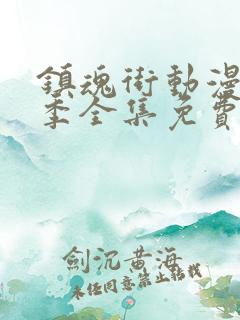 鎮魂街動漫
季全集免費
劍沉黃海
未經同意禁止轉載